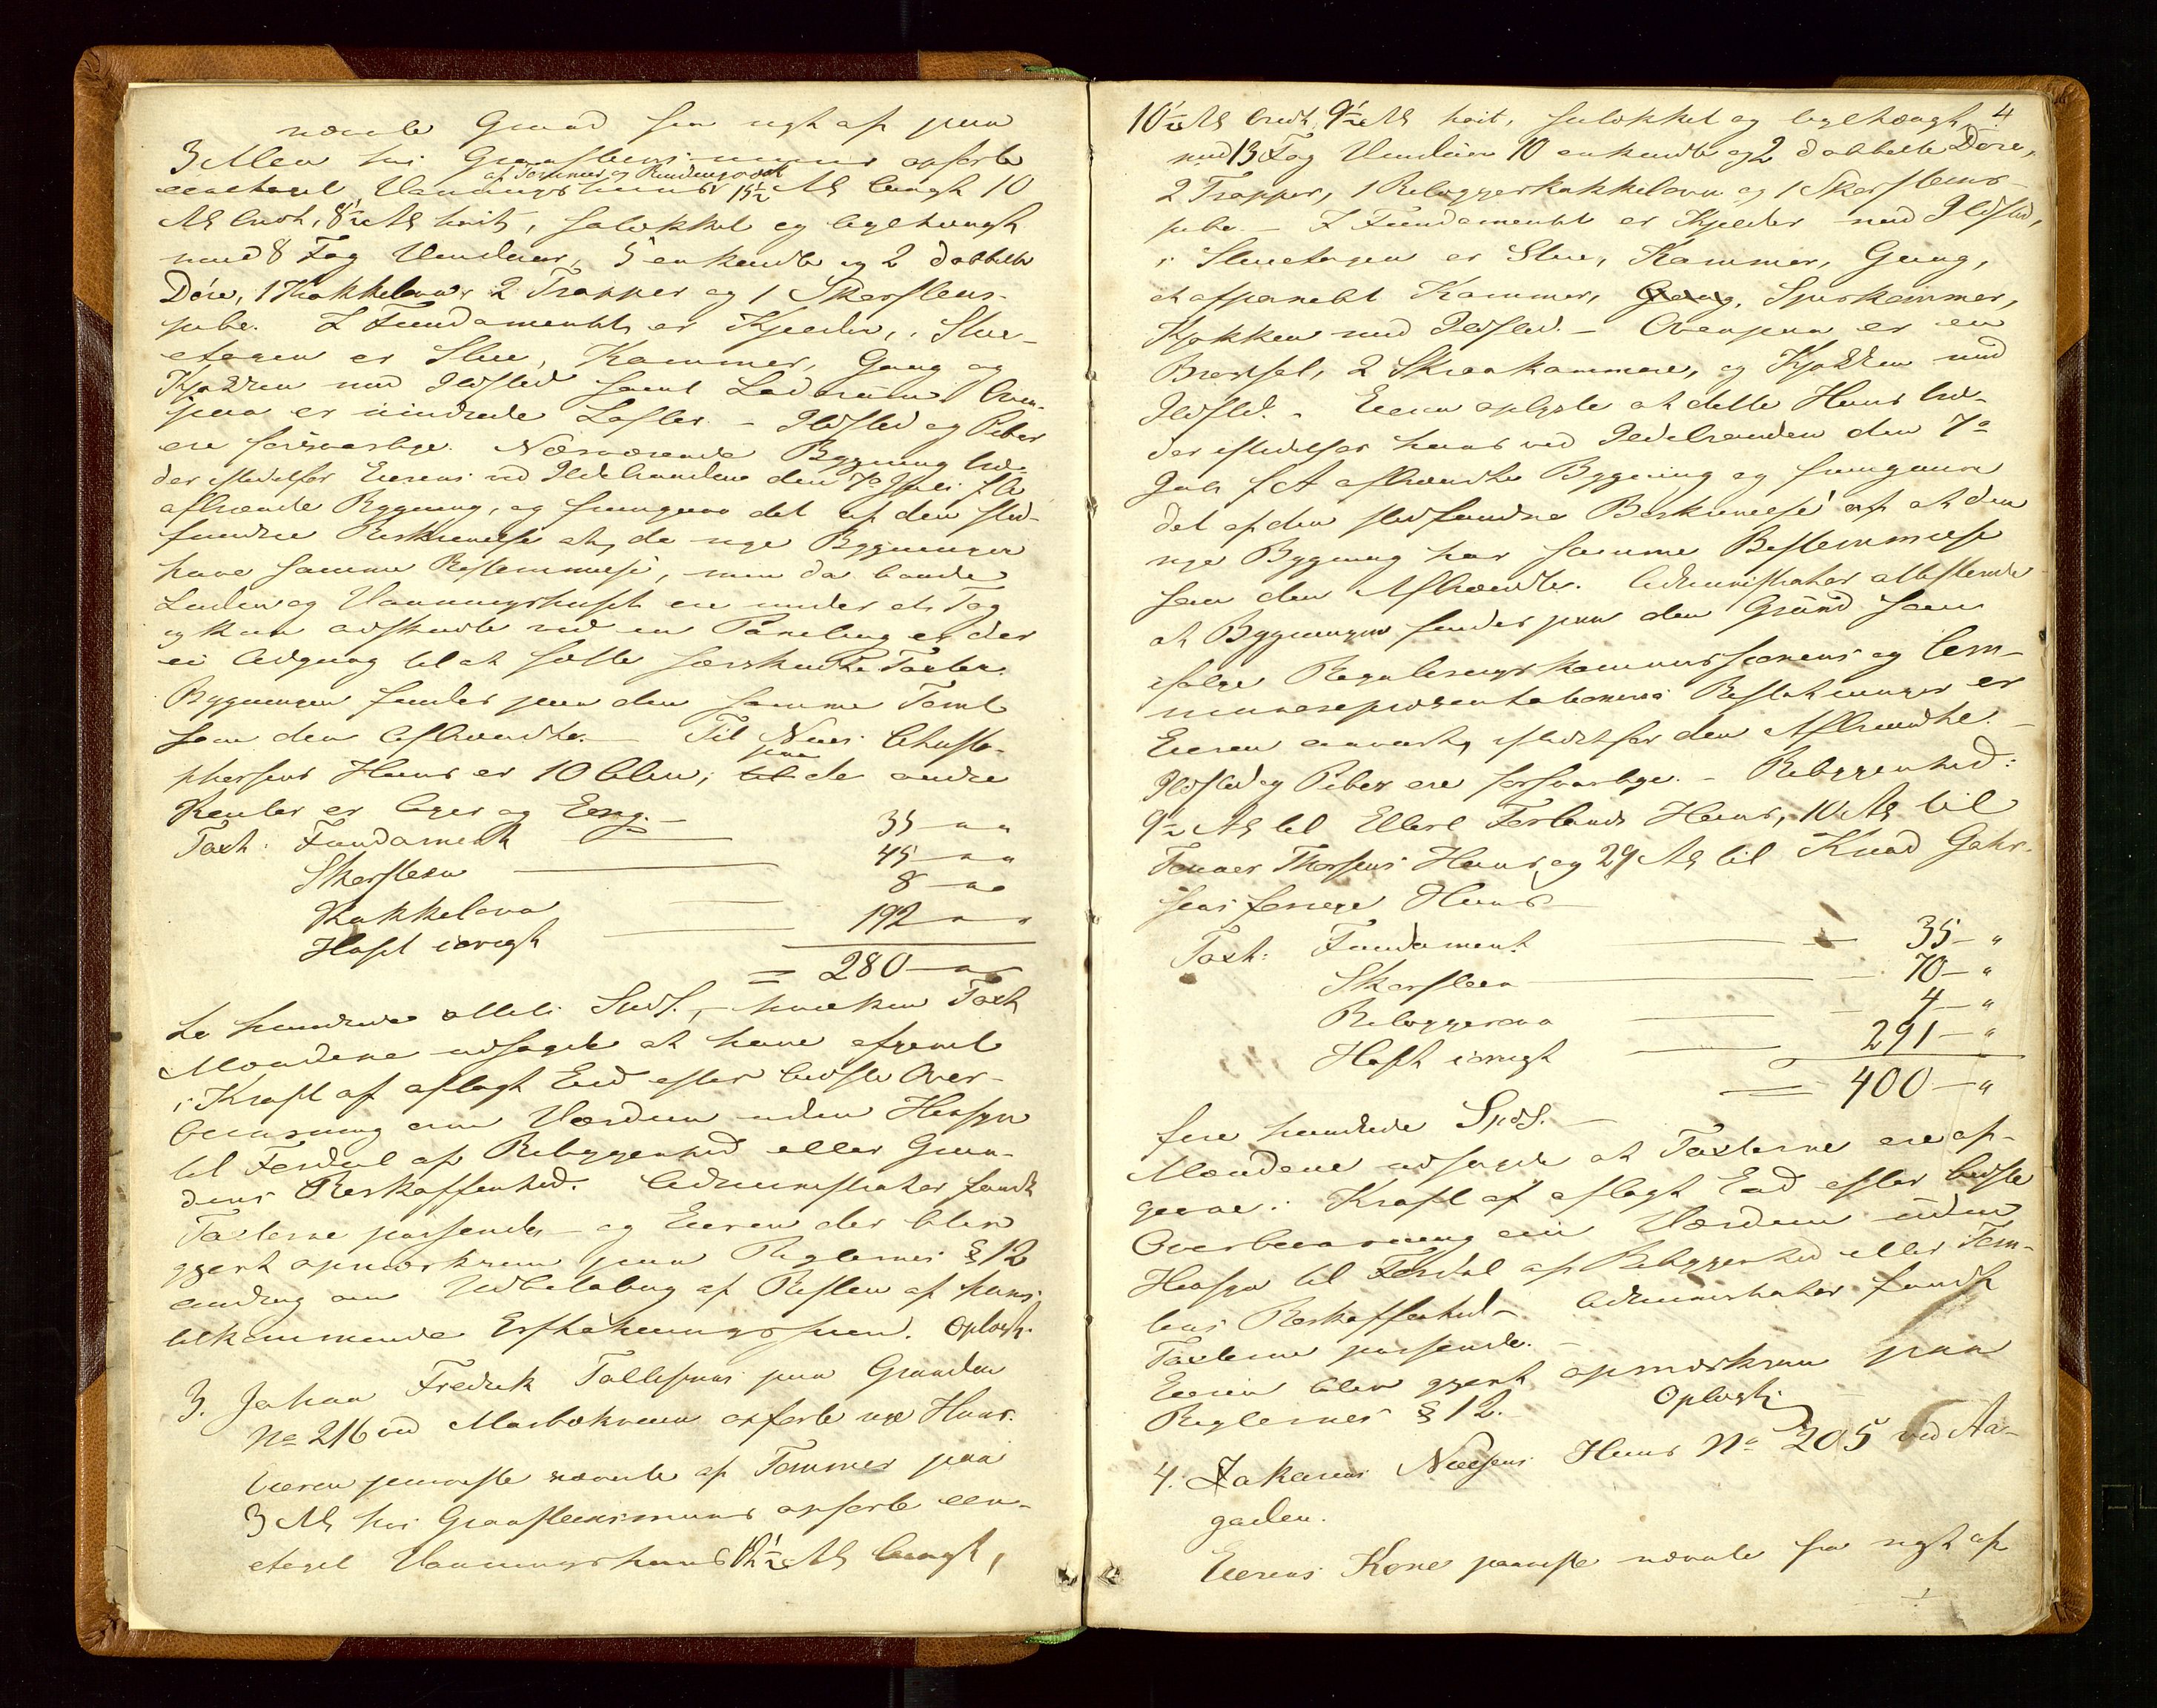 nævnte Grund som nyt af paa
3 Alen høi Graasteensmuur opførte
af Tømmer og Bindingsverk
eenetages Vaaningshuus 15½ Al langt 10
Al bredt, 8½ Al høit, helokket og teglhængt
med 8 Fag Vinduer, 5 enkendte og 2 dobbelte
Döre, 1 Kakkelovn 2 Trapper og 1 Skorsteens-
pibe. I Fundamentet er Kjelder, i Stue-
etagen er Stue, Kammer, Gang og
Kjøkken med Ildsted samt Laderum. Oven-
paa er uindrede Lofter. - Ildsted og Piber
ere forsvarlige. Nærværende Bygning træ-
der istedetfor Eierens ved Ildebranden den 7de Juli f. A.
afbrændte Bygning, og fremgaar det af den sted-
fundne Beskrivelse at de nye Bygninger
have samme Bestemmelse, men da baade
Laden og Vaaningshuset ere under et Tag
og kun adskildte ved en Paneling er der
ei Adgang til at sætte særskildte Taxter.
Bygningen findes paa den samme Tomt
som den Afbrændte. Til Niels Christo-
paa
phersens Huus er 10 Alen; til de andre
Kanter er Ager og Eng. -
Taxt: Fundament 35 - " "
Skorsteen 45 - " "
Kakkelovn 8 - " "
Huset iøvrigt 192 " "
= 280 - " "
to hundrede otteti Spd., - hvilken Taxt
Mændene udsagde at have afgivet
i Kraft af aflagt Eed efter bedste Over-
beviisning om Værdien uden Hensyn
til Fordeel af Bebyggenhed eller Grun-
dens Beskaffenhed. Administrator fandt
Taxterne passende og Eieren der blev
gjort opmærksom paa Reglernes § 12
andrag om Udbetaling af Resten af hans
tilkommende Erstatningssum. Oplæst.
3. Johan Fredrik Tollefsens paa Grunden
No 216 ved Marbækveien opførte nye Huus.
Eieren paaviste nævnte af Tømmer paa
3 Al høi Graasteensmuur opførte een-
etages Vaaningshuus 12½ Al langt,
4
10½ Al bredt, 9½ Al høit, helokket og teglhængt
med 13 Fag Vinduer 10 enkendte og 2 dobbelte Döre,
2 Trapper, 1 Bilæggerkakkelovn og 1 Skorsteens-
pibe. - I Fundamentet er Kjelder med Ildsted,
i Stueetagen er Stue, Kammer, Gang,
et afpanelet Kammer, Gang, Spiskammer,
Kjøkken med Ildsted. - Ovenpaa er en
Brødsal, 2 Skraakammere, og Kjøkken med
Ildsted. - Eieren oplyste at dette Huus træ-
der istedetfor hans ved Ildebranden den 7de
Juli f. A afbrændte Bygning og fremgaar
det af den stedfundne Beskrivelse at den
nye Bygning har samme Bestemmelse
som den Afbrændte. Administrator attesterede
at Bygningen findes paa den Grund som
ifølge Reguleringskommissionens og Com-
munerepræsentationens Beslutninger er
Eieren anviist istedetfor den Afbrændte. -
Ildsted og Piber ere forsvarlige. - Bebyggenhed:
9½ Al til Ellert Ferlands Huus, 10 Al til
Tønnes Thorsens Huus og 29 Al til Knud Gabr-
sens forrige Huus -
Taxt: Fundament 35 - "
Skorsteen 70 - "
Bilæggerovn 4 - "
Huset iøvrigt 291 - "
= 400 - "
fire hundrede Spd. -
Mændene udsagde at Taxterne ere af-
givne i Kraft af aflagt Eed efter bedste
Overbeviisning om Værdien uden
Hensyn til Fordel af Bebyggenhed eller Tom-
tens Beskaffenhed - Administrator fandt
Taxterne passende. -
Eieren blev gjort opmærksom paa
Reglernes § 12. Oplæst.
4. Zakarias Nielsens Huus No 205 ved Aa-
gaden.
Eierens Kone paaviste nævnte fra nyt af